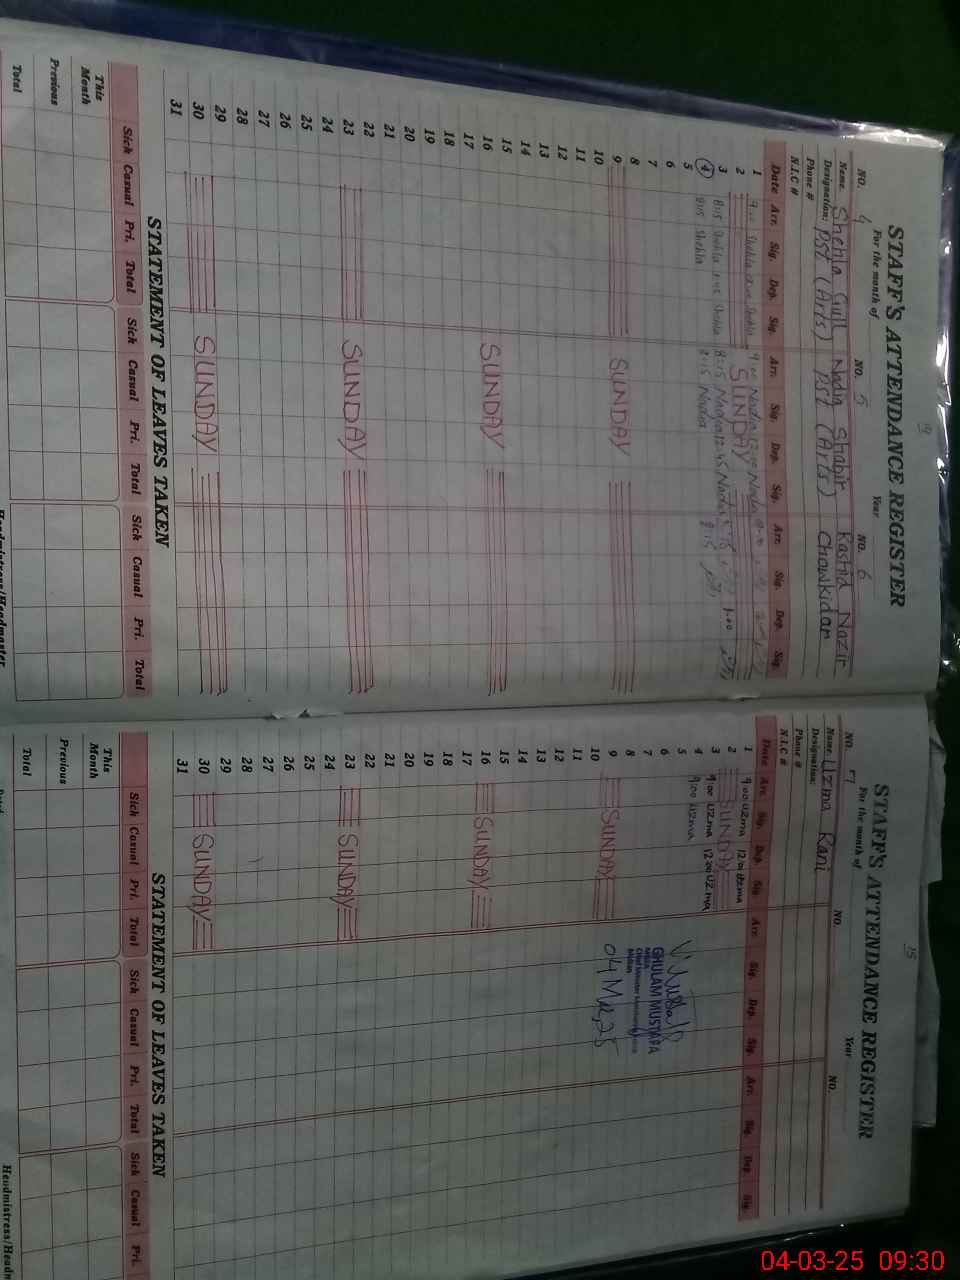 STAFF'S ATTENDANCE REGISTER
For the month of Year
NO. 4 NO. 5 NO. 6
Name. Shehla Gull Nadia Shabir Rashid Nazir
Designation: PST (Arts) PST (Arts) Chowkidar
Phone #
N.I.C #
Date Arr. Sig. Dep. Sig. Arr. Sig. Dep. Sig. Arr. Sig. Dep. Sig.
1 9:00 Shehla Shehla 9:00 Nadia 12:00 Nadia
2 SUNDAY
3 8:15 Shehla Shehla 8:15 Nadia 12:45 Nadia 1:00
4 8:15 Shehla 8:15 Nadia 8:15
5
6
7
8
9 SUNDAY
10
11
12
13
14
15
16 SUNDAY
17
18
19
20
21
22
23 SUNDAY
24
25
26
27
28
29
30 SUNDAY
31
STATEMENT OF LEAVES TAKEN
Sick Casual Pri. Total Sick Casual Pri. Total Sick Casual Pri. Total
This Month
Previous
Total
Headmistress/Headmaster
15
STAFF'S ATTENDANCE REGISTER
For the month of Year
NO. 7 NO. NO.
Name. Uzma Rani
Designation:
Phone #
N.I.C #
Date Arr. Sig. Dep. Sig. Arr. Sig. Dep. Sig. Arr. Sig. Dep. Sig.
1 9:00 Uzma 12:00 Uzma
2 SUNDAY
3 9:00 Uzma 12:00 Uzma
4 9:00 Uzma
5
6
7
8
9 SUNDAY
10
11
12
13
14
15
16 SUNDAY
17
18
19
20
21
22
23 SUNDAY
24
25
26
27
28
29
30 SUNDAY
31
GHULAM MUSTAFA
04 Mar, 25
STATEMENT OF LEAVES TAKEN
Sick Casual Pri. Total Sick Casual Pri. Total Sick Casual Pri.
This Month
Previous
Total
Headmistress/Headm
04-03-25 09:30